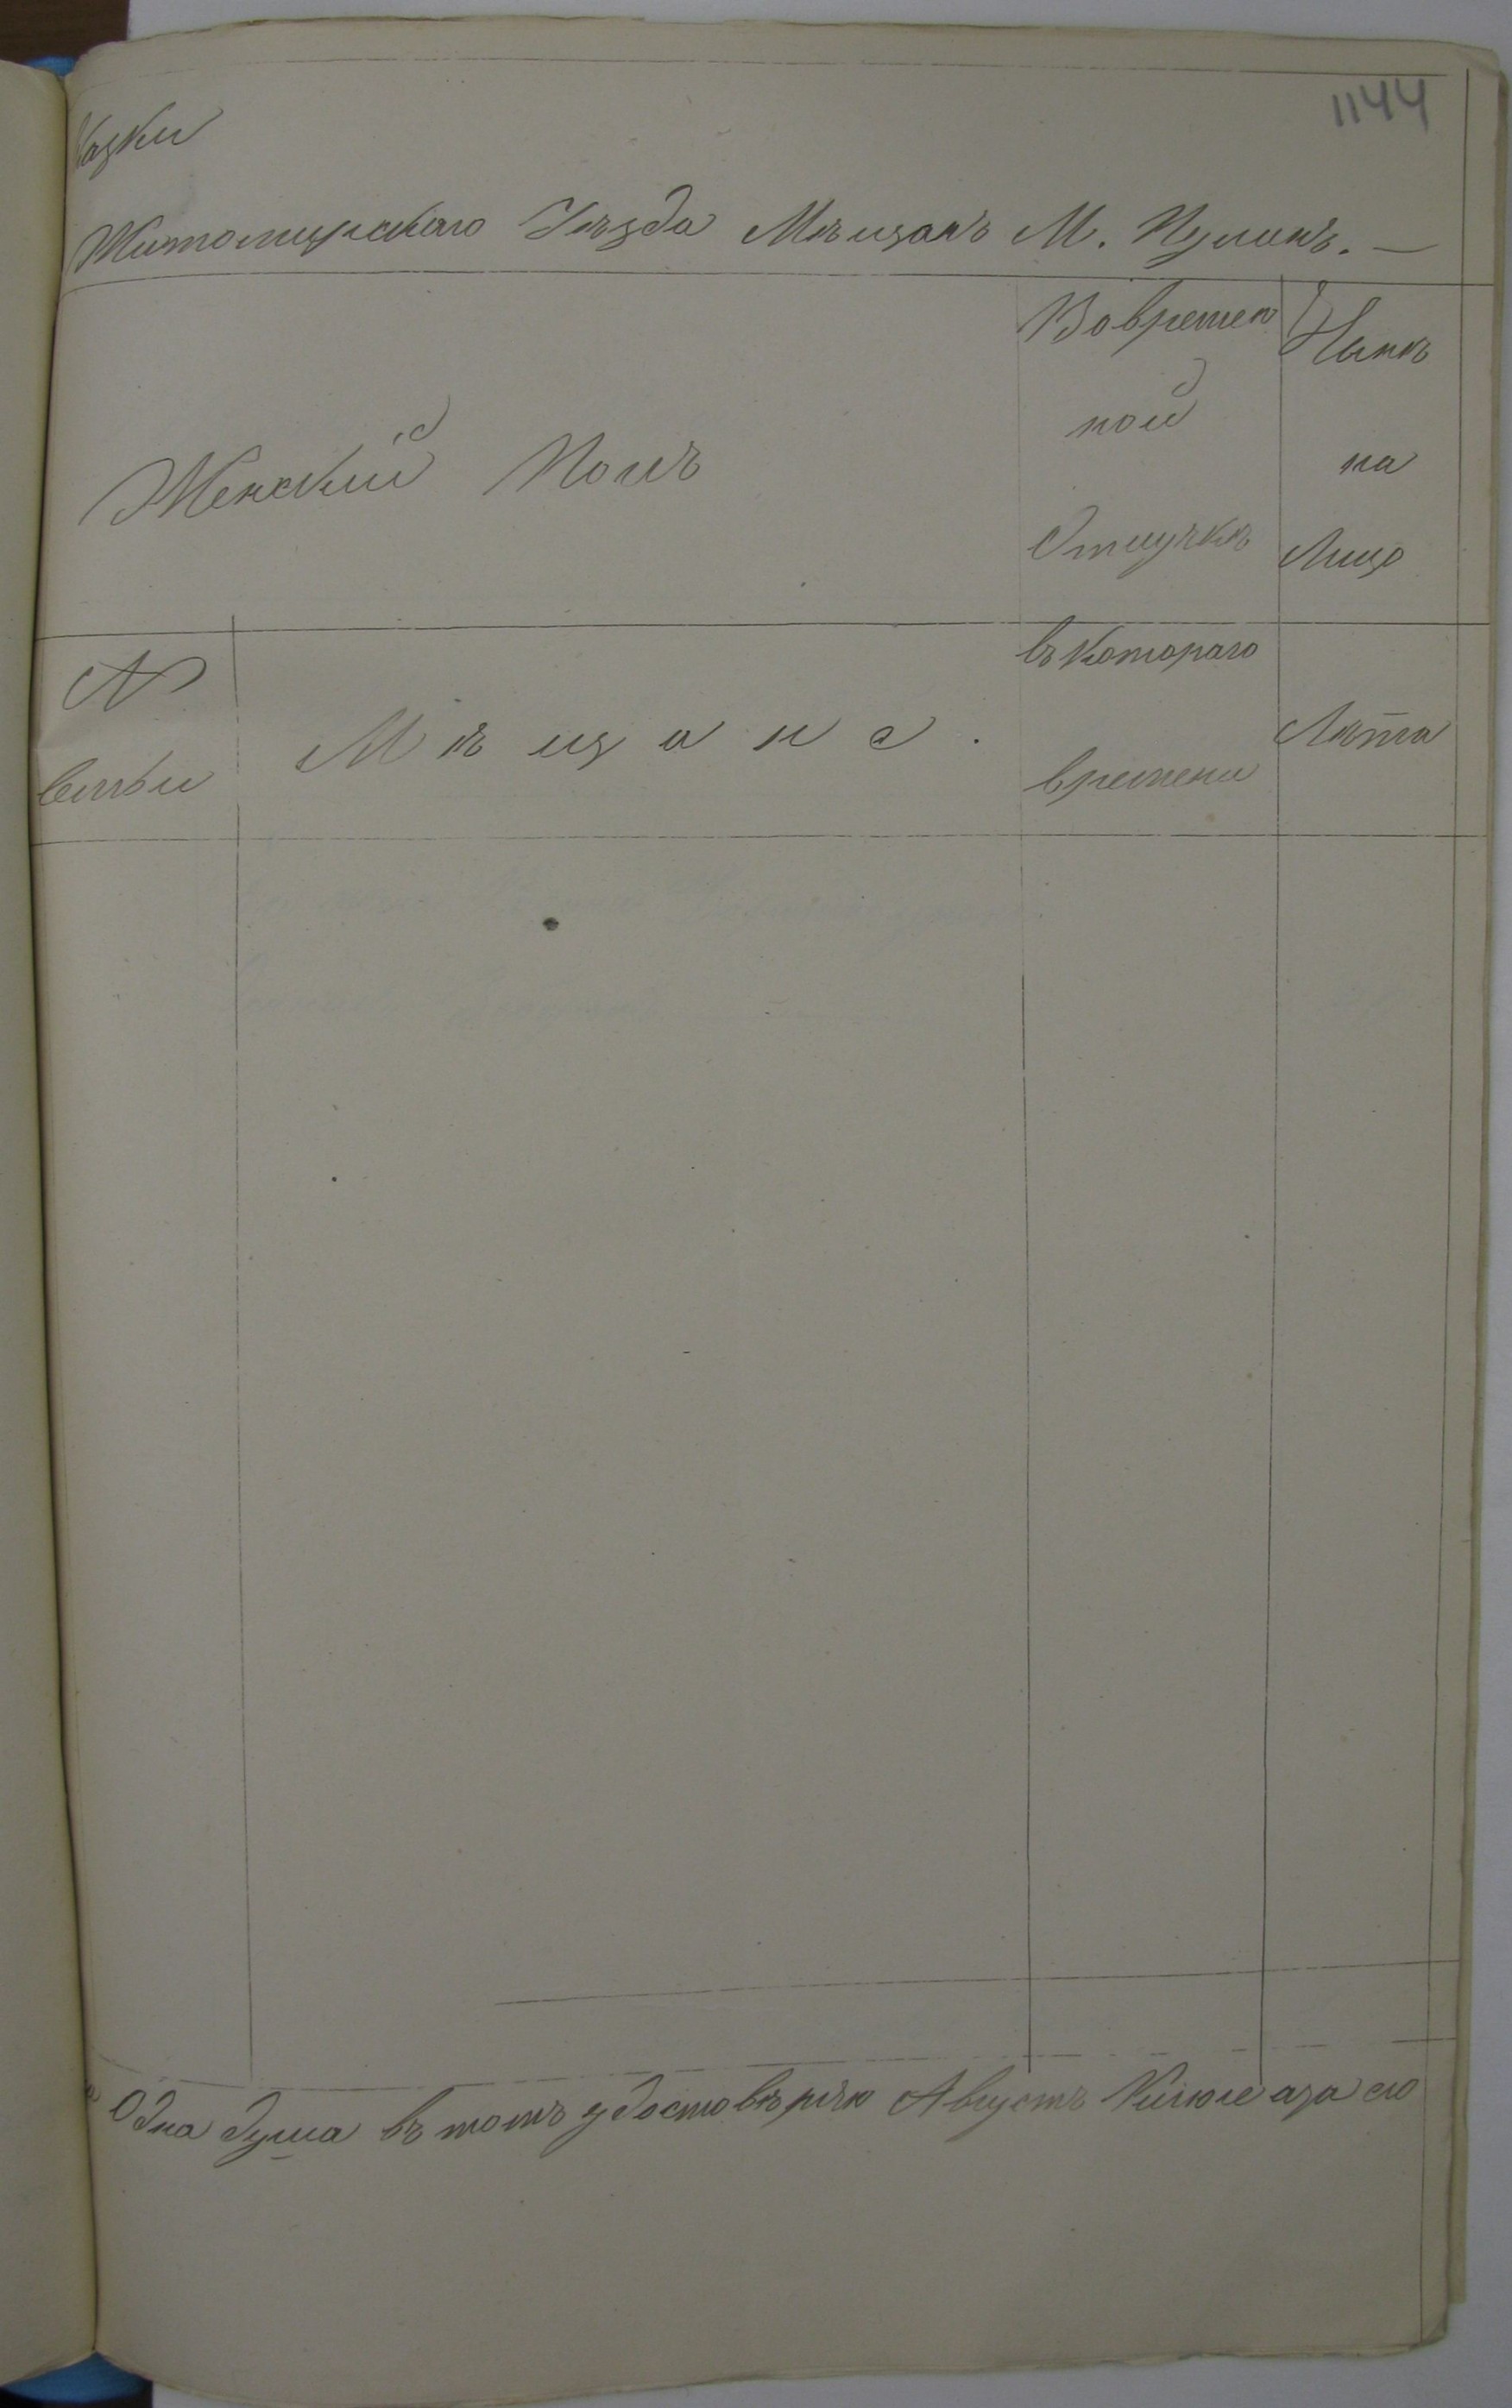 1144
казки
Житомирскаго Уѣзда Мѣщанъ М. Пулинъ. —
Женскій Полъ
Вовремен
ной
Отлучкѣ
Нынѣ
на
Лицо
№
семьи
Мѣщане.
съ котораго
времени
Лѣта
Одна душа въ томъ удостовѣряю Августъ